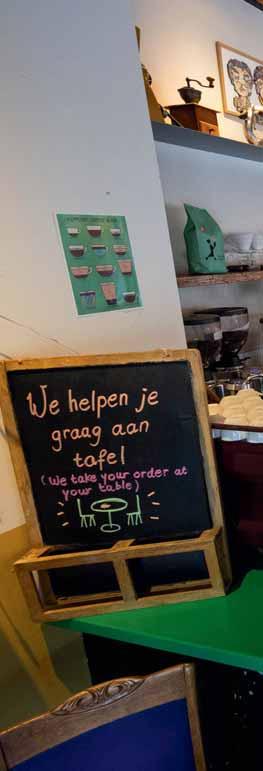 We helpen je
graag aan
tafel
(We take your order at
your table)